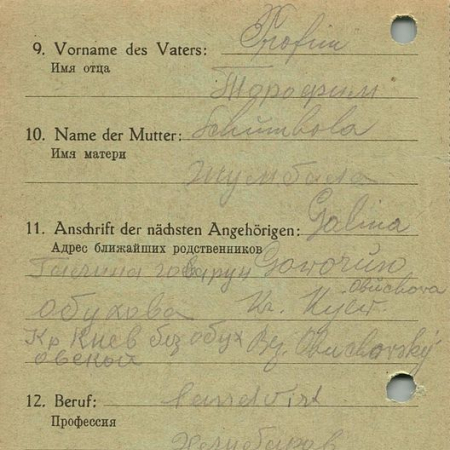 9. Vorname des Vaters: Trofim
Имя отца
Торофим
10. Name der Mutter: Schumbola
Имя матери
Жумбала
11. Anschrift der nächsten Angehörigen: Galina
Адрес ближайших родственников
Галина говарун Goworun
Obuchova
обухова Kr. Kyiw
Кр Киев без обух Bez. Obuchorský
овской
12. Beruf: Landwirt
Профессия